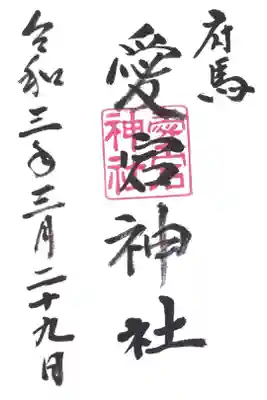 府馬
愛宕神社
愛宕神社
令和三年三月二十九日